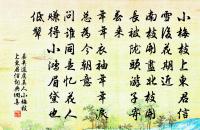 小梅枝上東君信
雪後花期近
南枝開盡北枝開
長被隴頭遊子寄
春來
年年衣袖年年淚
總為今朝意
問誰同是憶花人
賺得小鴻眉黛也
低顰
晏幾道虞美人小梅枝
上東君信